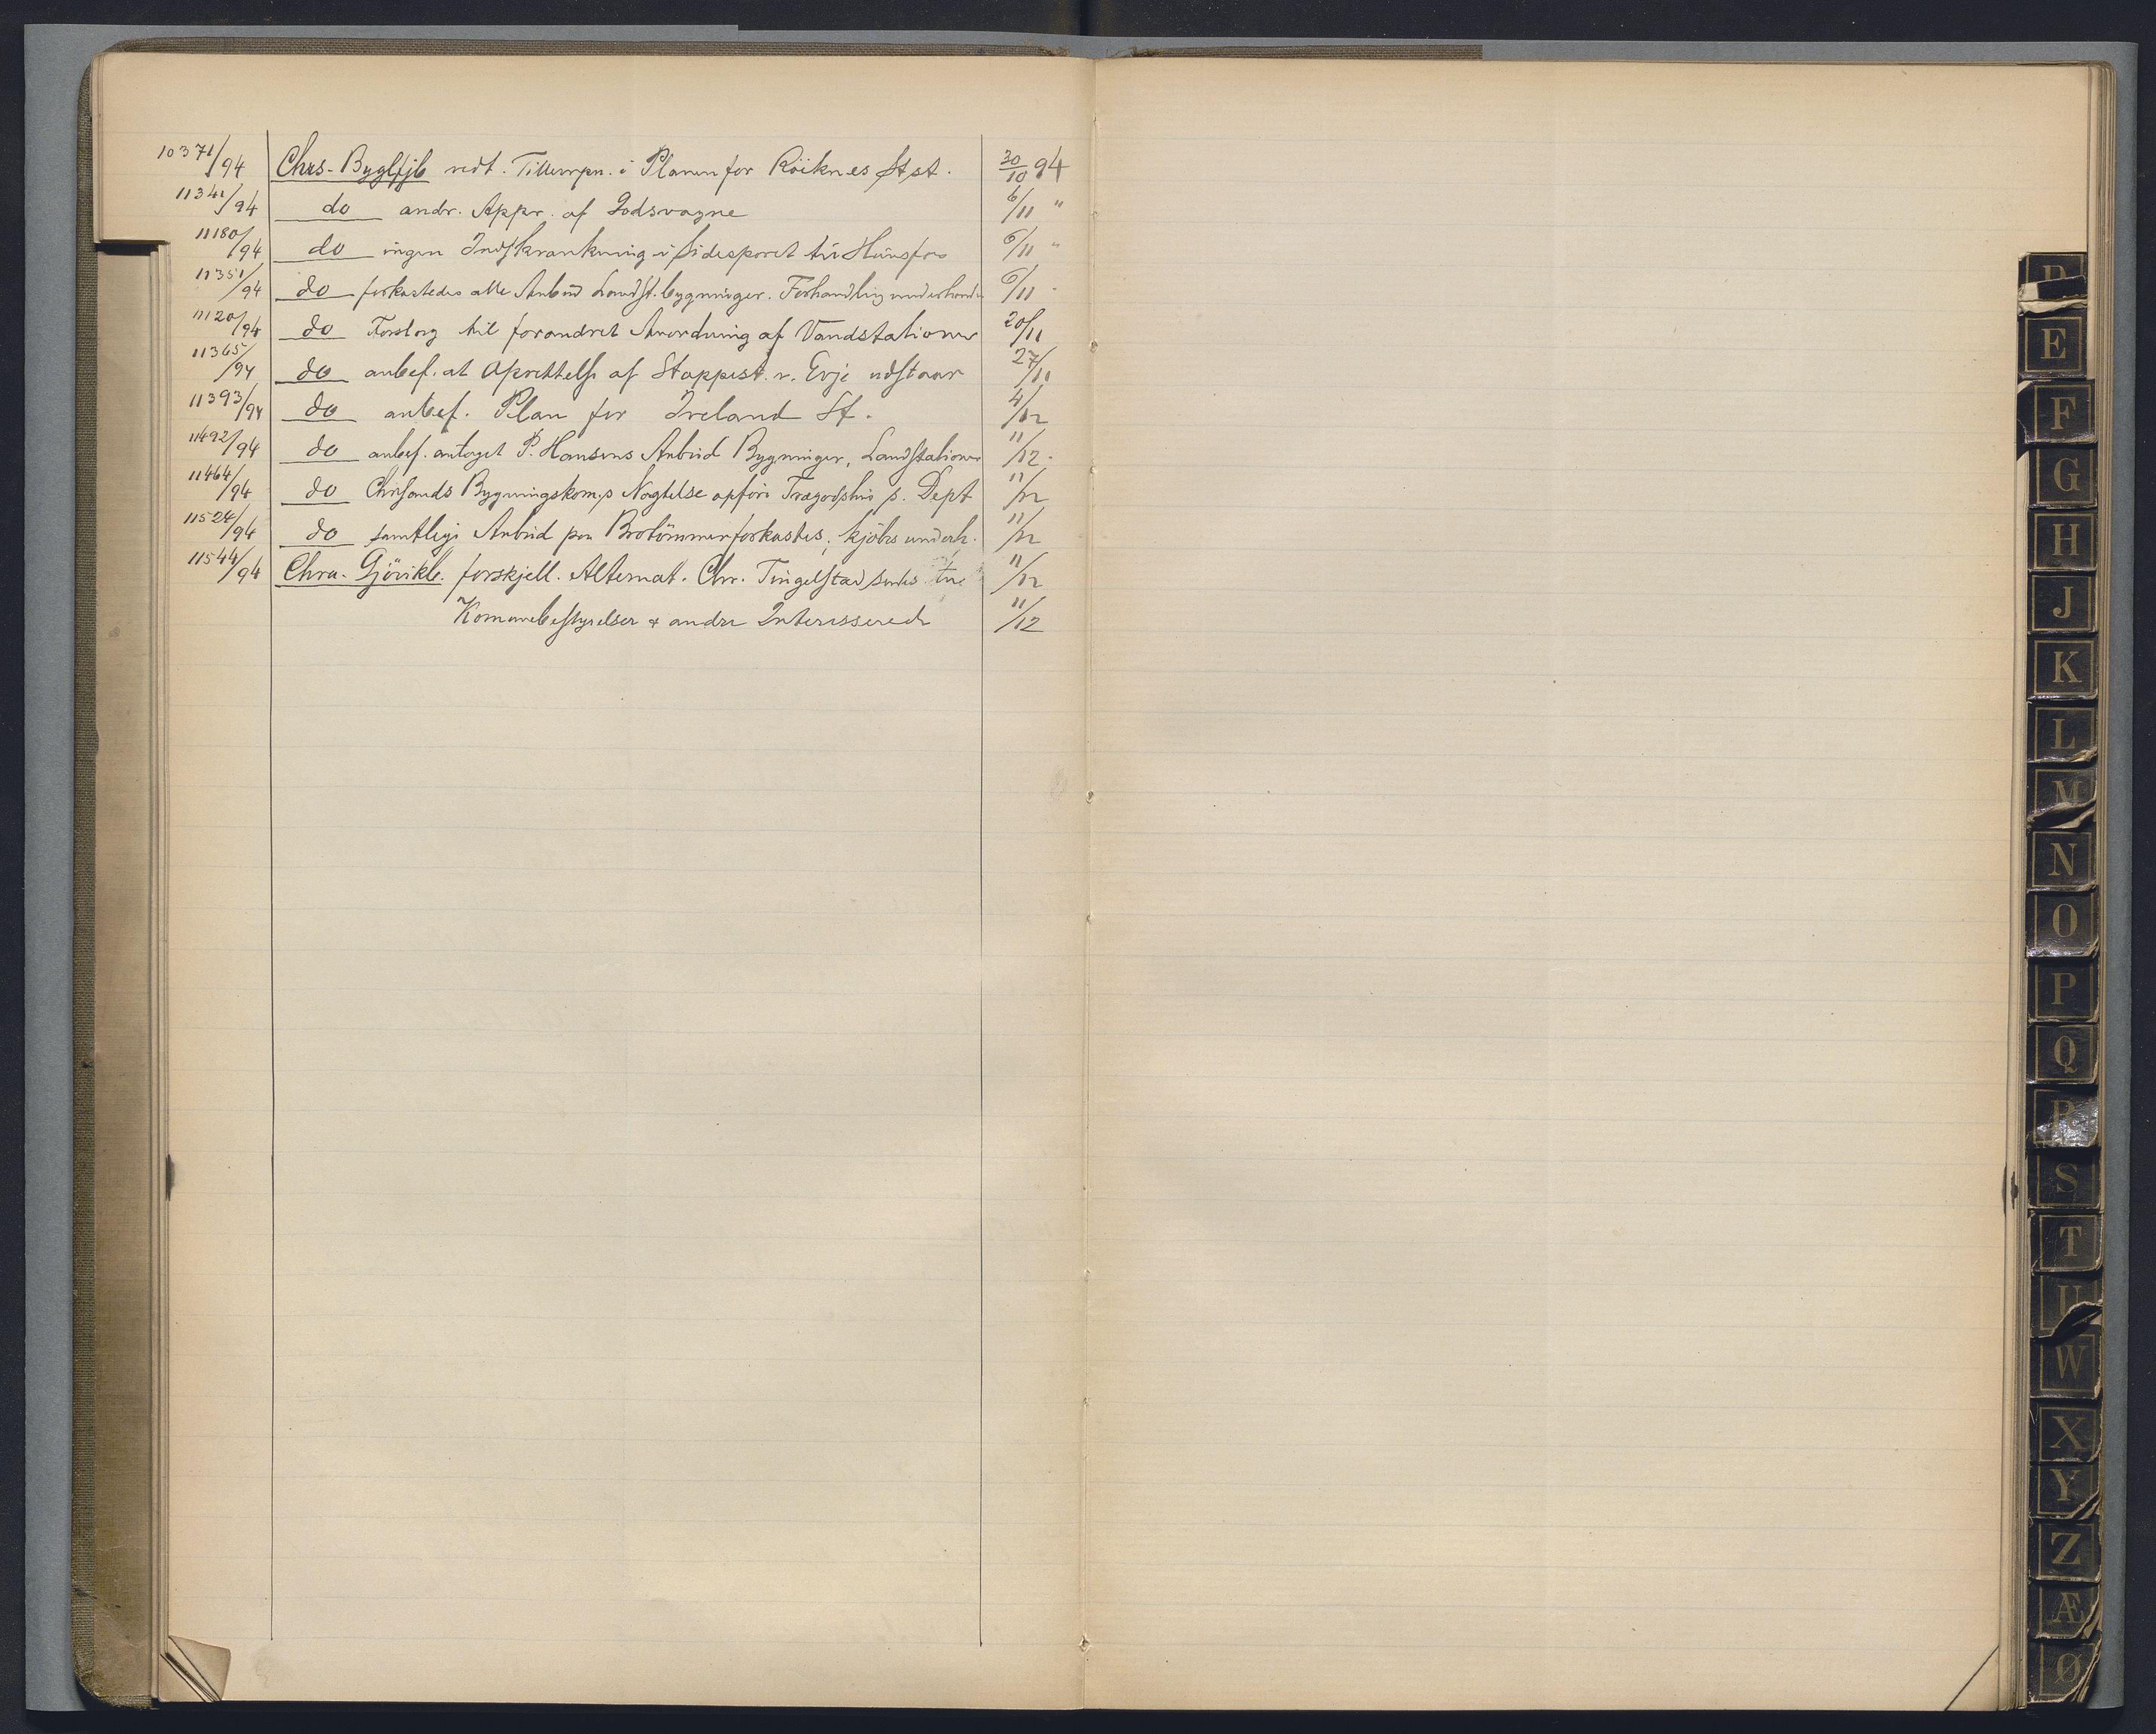 10371/94 Chrs-Byglfjb vedt. Tillempn. i Planen for Röiknes Stst. 30/10 94
11341/94 do andr. Appr. af Godsvogne 6/11 "
11180/94 do ingen Indskrænkning i Sidesporet til Hunsfos 6/11 "
11351/94 do forkastedes alle Anbud Landst. bygninger. Forhandling underhaand 6/11 -
11120/94 do Forslag til forandret Anordning af Vandstationer 20/11
11365/94 do anbef. at Oprettelse af Stoppest. v. Evje udstaar 27/11
11393/94 do anbef. Plan for Iveland St. 4/12
11492/94 do anbef. antaget P. Hansens Anbud Bygninger, Landstationer 11/12 -
11464/94 do Chrsands Bygningskom.s Nægtelse opføre p. Dept 11/12
11524/94 do samtlige Anbud paa Brotömmer forkastes; kjøbes underh. 11/12
11544/94 Chra. Gjövikb. forskjell. Alternat. Chr. Tingelstad sendes 11/12
Komunebestyrelser & andre Interesserede 11/12
D
E
F
G
H
J
K
L
M
N
O
P
Q
R
S
T
U
W
X
Y
Z
Æ
Ø